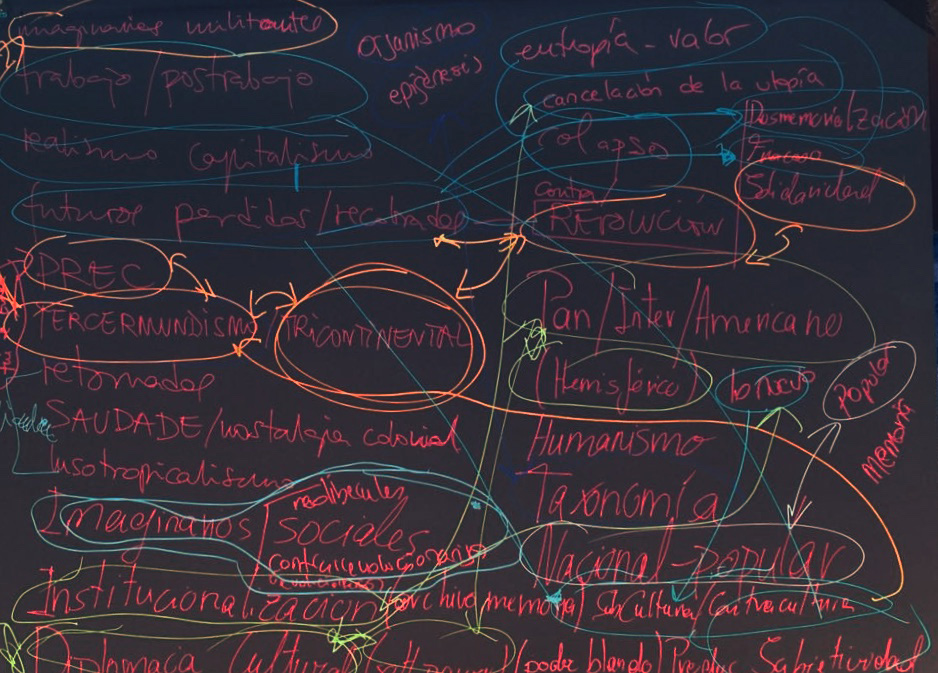 imaginarios militantes
trabajo/postrabajo
realismo capitalismo
futuros perdidos/recobrados
PREC
TERCERMUNDISMO
TRICONTINENTAL
retornados
SAUDADE/nostalgia colonial
lusotropicalismo
Imaginarios
SOCIALES
Institucionalización/archivo/memoria/Subcultura/Contracultura
Diplomacia Cultural
/poder blando/
Subjetividad
Organismo
epigénesis
entropía-valor
cancelación de la utopía
Desmemorialización
colapso
Fracaso
Solidaridad
contra
REVOLUCIÓN
Pan/Inter/Americano
(Hemisférico)
lo nuevo
Popular
Memoria
Humanismo
Taxonomía
Nacional-popular